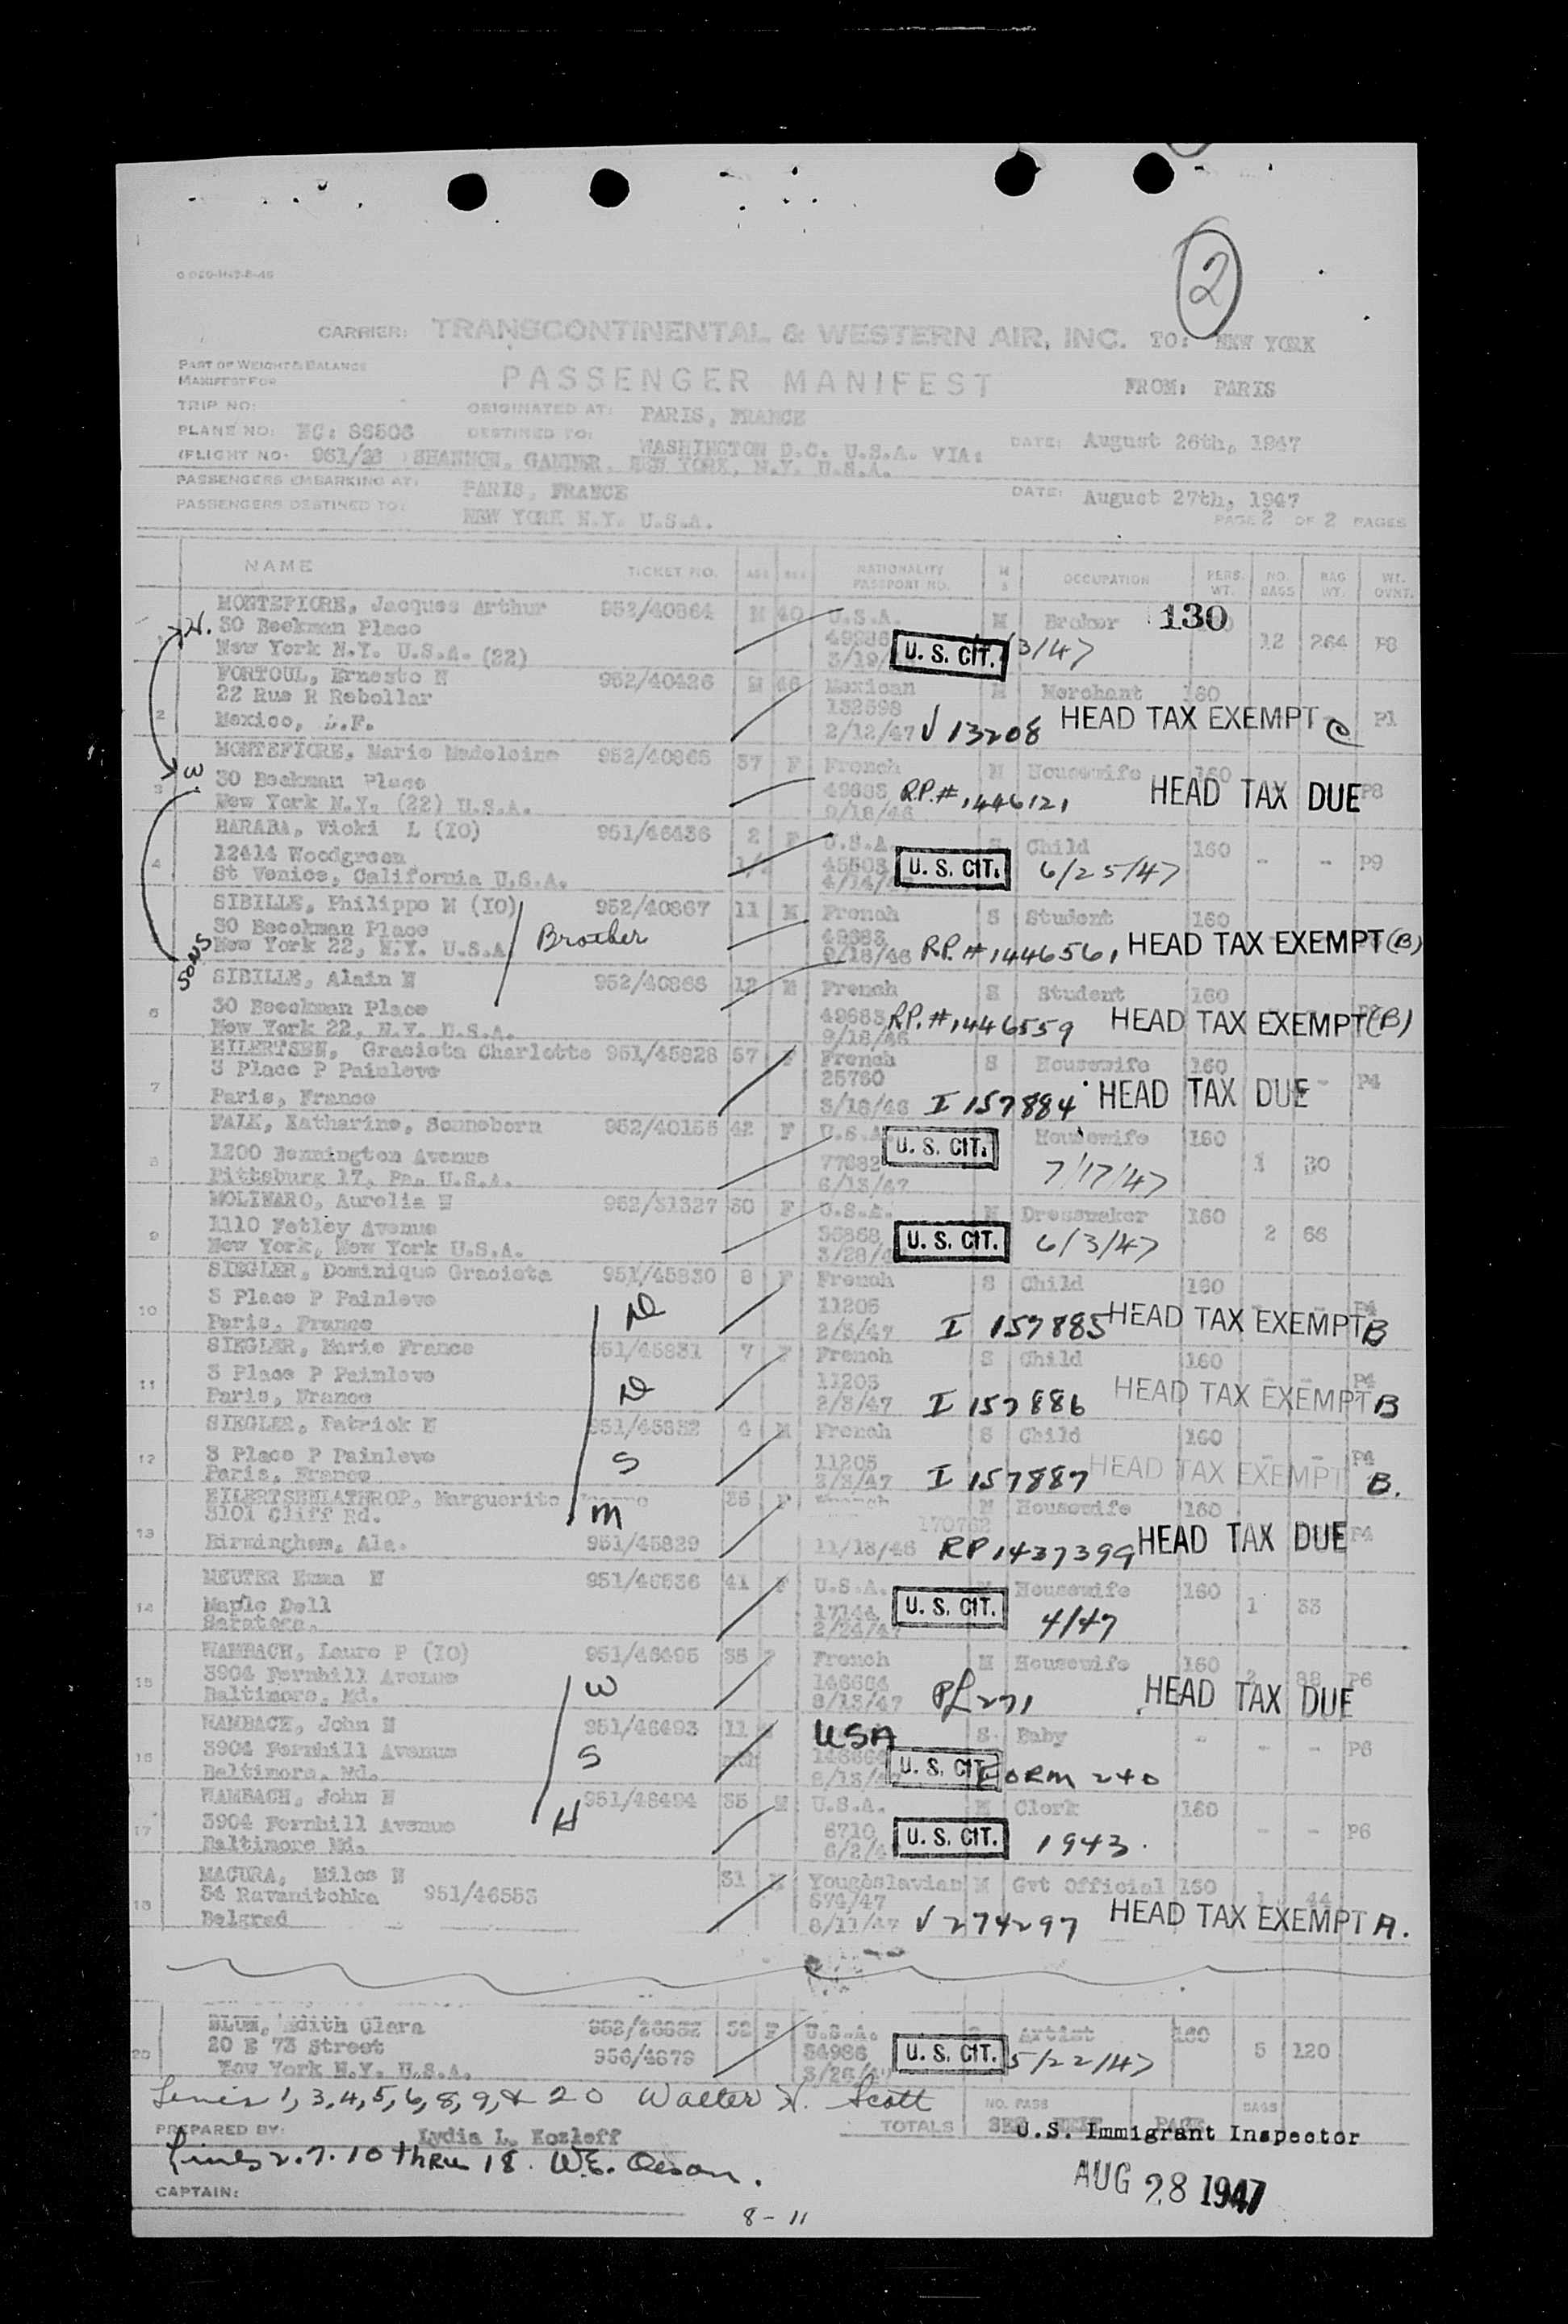 2
CARRIER: TRANSCONTINENTAL & WESTERN AIR, INC. TO: NEW YORK
PART OF WEIGHT & BALANCE
MANIFEST FOR
PASSENGER MANIFEST FROM: PARIS
TRIP NO: ORIGINATED AT: PARIS, FRANCE
PLANE NO: NC: 86506 DESTINED TO: WASHINGTON D.C. U.S.A. VIA: DATE: August 26th, 1947
(FLIGHT NO. 961/26 ) SHANNON, GANDER, NEW YORK, N.Y. U.S.A.
PASSENGERS EMBARKING AT: PARIS, FRANCE DATE: August 27th, 1947
PASSENGERS DESTINED TO: NEW YORK N.Y. U.S.A. PAGE 2 OF 2 PAGES
NAME TICKET NO. AGE SEX NATIONALITY PASSPORT NO. M S OCCUPATION PERS. WT. NO. BAGS BAG WT. WT. OVHT.
MONTEFIORE, Jacques Arthur 952/40864 M 40 U.S.A. M Broker 130
H. 30 Beekman Place 49986 U.S. CIT. 3/47 12 264 P8
New York N.Y. U.S.A. (22) 3/19/
FORTOUL, Ernesto N 952/40426 M 46 Mexican M Merchant 160
22 Rue R Rebollar 132598
2 Mexico, D.F. 2/12/47 V 13208 HEAD TAX EXEMPT C P1
MONTEFIORE, Marie Madeleine 952/40865 37 F French M Housewife 160
W 3 30 Beekman Place 49685 RP.# 1446121 HEAD TAX DUE P8
New York N.Y. (22) U.S.A. 9/18/46
BARABA, Vicki L (IO) 951/46436 2 F U.S.A. S Child 160
4 12414 Woodgreen 1/2 45503 U.S. CIT. 6/25/47 - - P9
St Venice, California U.S.A. 4/14/
SIBILLE, Philippe N (IO) 952/40867 11 M French S Student 160
30 Beeckman Place Brother 49683
SONS New York 22, N.Y. U.S.A 9/18/46 RP.# 1446561 HEAD TAX EXEMPT (B)
SIBILLE, Alain N 952/40866 12 M French S Student 160
6 30 Beeckman Place 49683 RP.# 1446559 HEAD TAX EXEMPT (B)
New York 22, N.Y. U.S.A. 9/18/46
EILERTSEN, Gracieta Charlotte 951/45828 57 F French S Housewife 160
3 Place P Painleve 25760
7 Paris, France 3/16/46 I 157884 HEAD TAX DUE - P4
FALK, Katharine, Sonneborn 952/40155 42 F U.S.A. U.S. CIT. Housewife 160
8 1200 Bennington Avenue 77682 1 30
Pittsburg 17, Pa. U.S.A. 6/13/47 7/17/47
MOLINARO, Aurelia N 952/31327 30 F U.S.A. M Dressmaker 160
9 1110 Fetley Avenue 55868 U.S. CIT. 6/3/47 2 66
New York, New York U.S.A. 3/28/
SIEGLER, Dominique Gracieta 951/45830 8 F French S Child 160
10 3 Place P Painleve D 11205 P4
Paris, France 2/3/47 I 157885 HEAD TAX EXEMPT B
SIEGLER, Marie France 951/45831 7 F French S Child 160
11 3 Place P Painleve D 11205 P4
Paris, France 2/3/47 I 157886 HEAD TAX EXEMPT B
SIEGLER, Patrick N 951/45832 4 M French S Child 160
12 3 Place P Painleve S 11205 P4
Paris, France 2/3/47 I 157887 HEAD TAX EXEMPT B.
EILERTSENLATHROP, Marguerite 35 F French M Housewife 160
3101 Cliff Rd. M 170762
13 Birmingham, Ala. 951/45829 11/18/46 RP 1437399 HEAD TAX DUE P4
MEUTER Emma N 951/46536 41 F U.S.A. M Housewife 160
14 Maple Dell 17144 U.S. CIT. 4/47 1 33
Saratoga, 2/24/47
WAMBACH, Laure P (IO) 951/46495 35 F French M Housewife 160
15 3904 Fernhill Avenue W 146664 2 88 P6
Baltimore, Md. 8/13/47 PL 271 HEAD TAX DUE
WAMBACH, John N 951/46493 11 USA S. Baby -
16 3904 Fernhill Avenue S 146664 U.S. CIT. FORM 240 - - P6
Baltimore, Md. 8/13/47
WAMBACH, John N H 951/46494 35 M U.S.A. M Clerk 160
17 3904 Fernhill Avenue 6710 U.S. CIT. 1943. - - P6
Baltimore Md. 6/2/4
MACURA, Milos N 31 M Yougoslavian M Gvt Official 160
34 Ravanitchka 951/46553 674/47 1 44
18 Belgrad 8/11/47 V 274297 HEAD TAX EXEMPT A.
BLUM, Edith Clara 952/26532 52 F U.S.A. S Artist 160
20 20 E 73 Street 956/4679 84986 U.S. CIT. 5/22/47 5 120
New York N.Y. U.S.A. 3/26/47
Lines 1, 3, 4, 5, 6, 8, 9, & 20 Walter H. Scott
NO. PASS BAGS
TOTALS PAGE
PREPARED BY: Lydia L. Kozleff U.S. Immigrant Inspector
Lines 2. 7. 10 thru 18. W.E. Olson.
CAPTAIN: AUG 28 1947
8 - 11